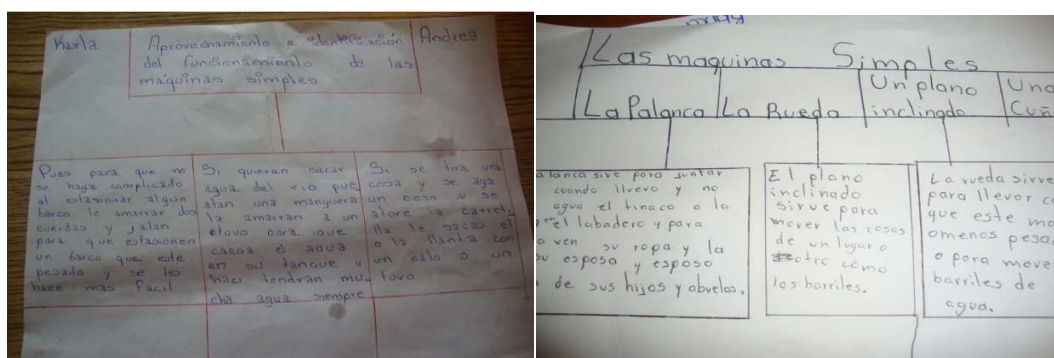 Karla
Aprovechamiento e identificación
del funcionamiento de las
maquinas simples
Andrea
Pues para que no
se haga complicado
al estasionar algun
barco le amarrar dos
cuerdas y jalan
para que estasionen
un barco que este
pesado y se les
hace mas facil
Si quieran sacar
agua del rio pue
atan una manguera
la amarran a un
que
caega el agua
en su tanque y
haci tendran mu-
cha agua siempre
Si se tira una
cosa y se aga
un poso y se
atore la carreti-
lla le sacas el
o la llanta con
un palo o un
tuvo
Las maquinas Simples
La Palanca
La Rueda
Un plano
inclinado
Una
Cuñ
sive para juntar
cuando lluevo y no
agua el tinaco o la
el labadero y para
ven su ropa y la
esposa y esposo
de sus hijos y abuelos.
El plano
inclinado
sirve para
mover las cosas
de un lugar a
otro como
los barriles.
La rueda sirve
para llevar co
que este ma
omenos pesa
o para move
barriles de
agua.